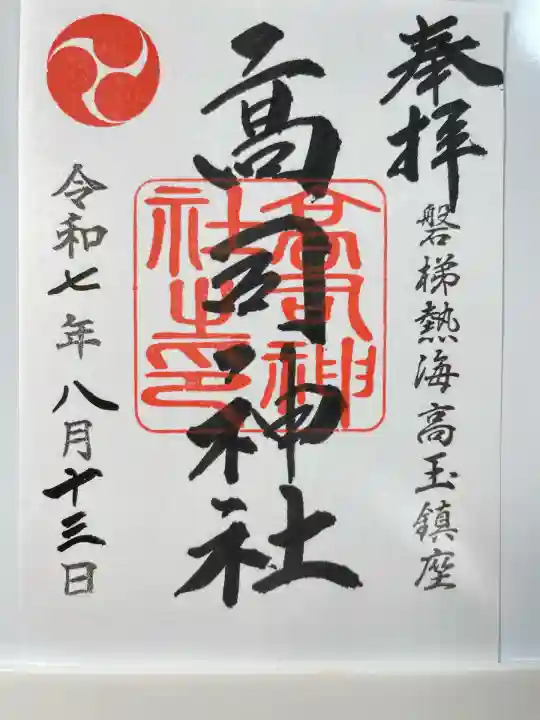 奉拝
磐梯熱海高玉鎮座
高司神社
高司神
社之印
令和七年八月十三日